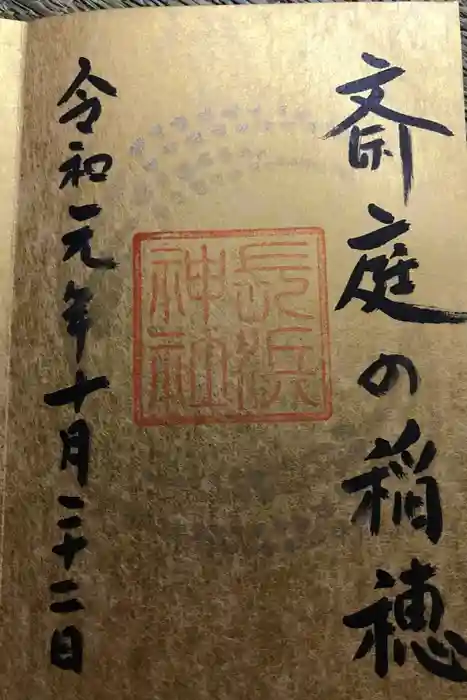 斎庭の稲穂
長浜神社
令和元年十月二十二日